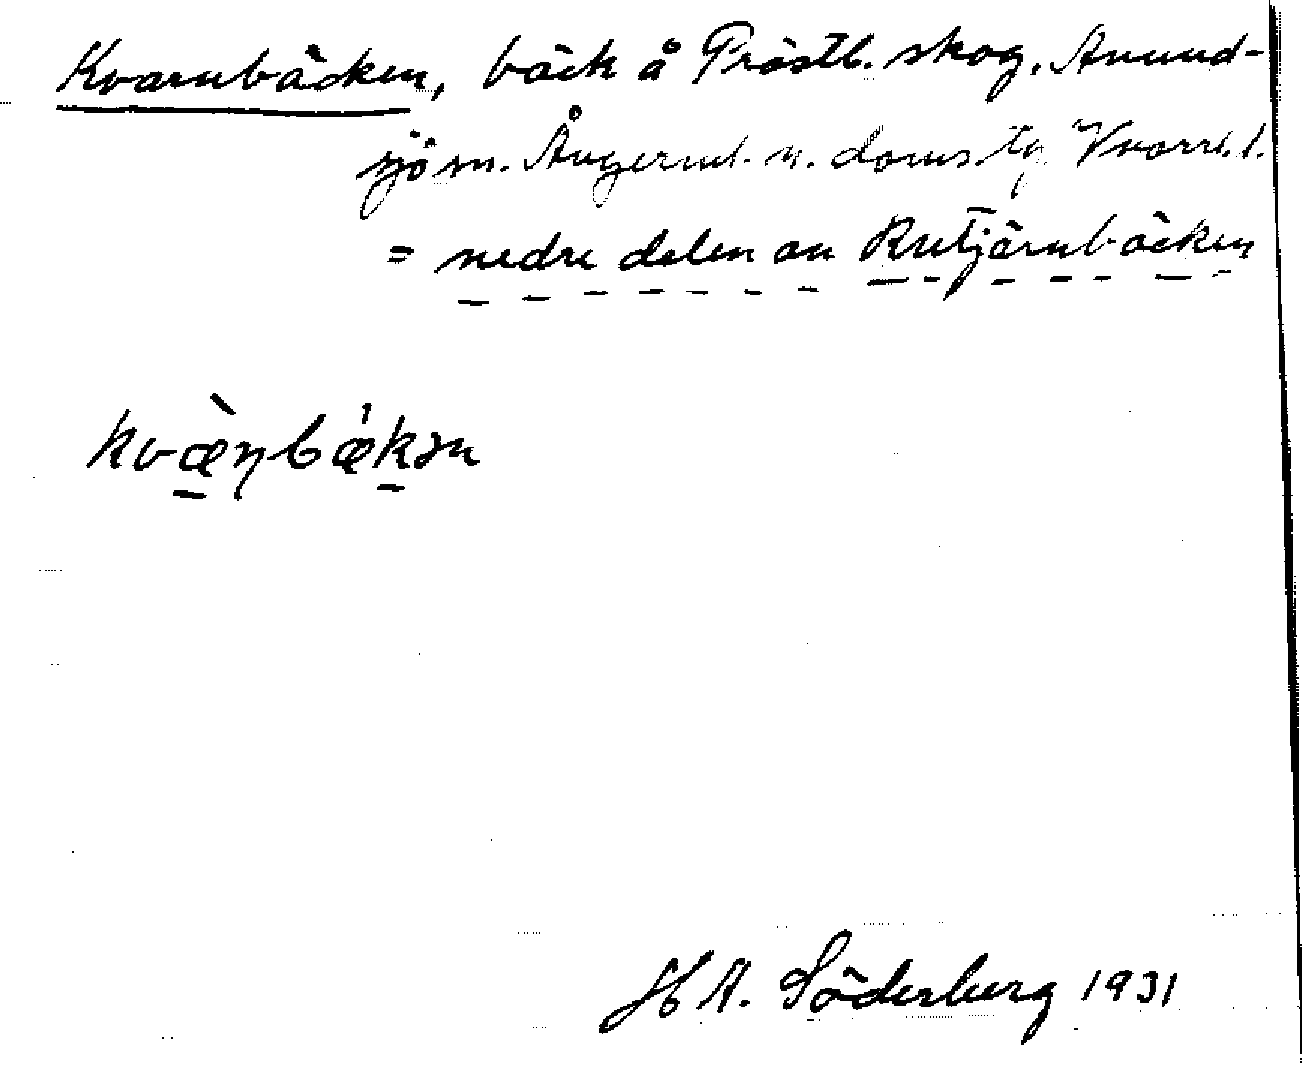 Kvarnbäcken, bäck å Prästb. skog, Anund-
sjö sn. Ångerml. n. doms. tg Vnorrl. l.
= nedre delen av Rutjärnbäcken
kvæ̀ŋbækən
H A. Söderberg 1931